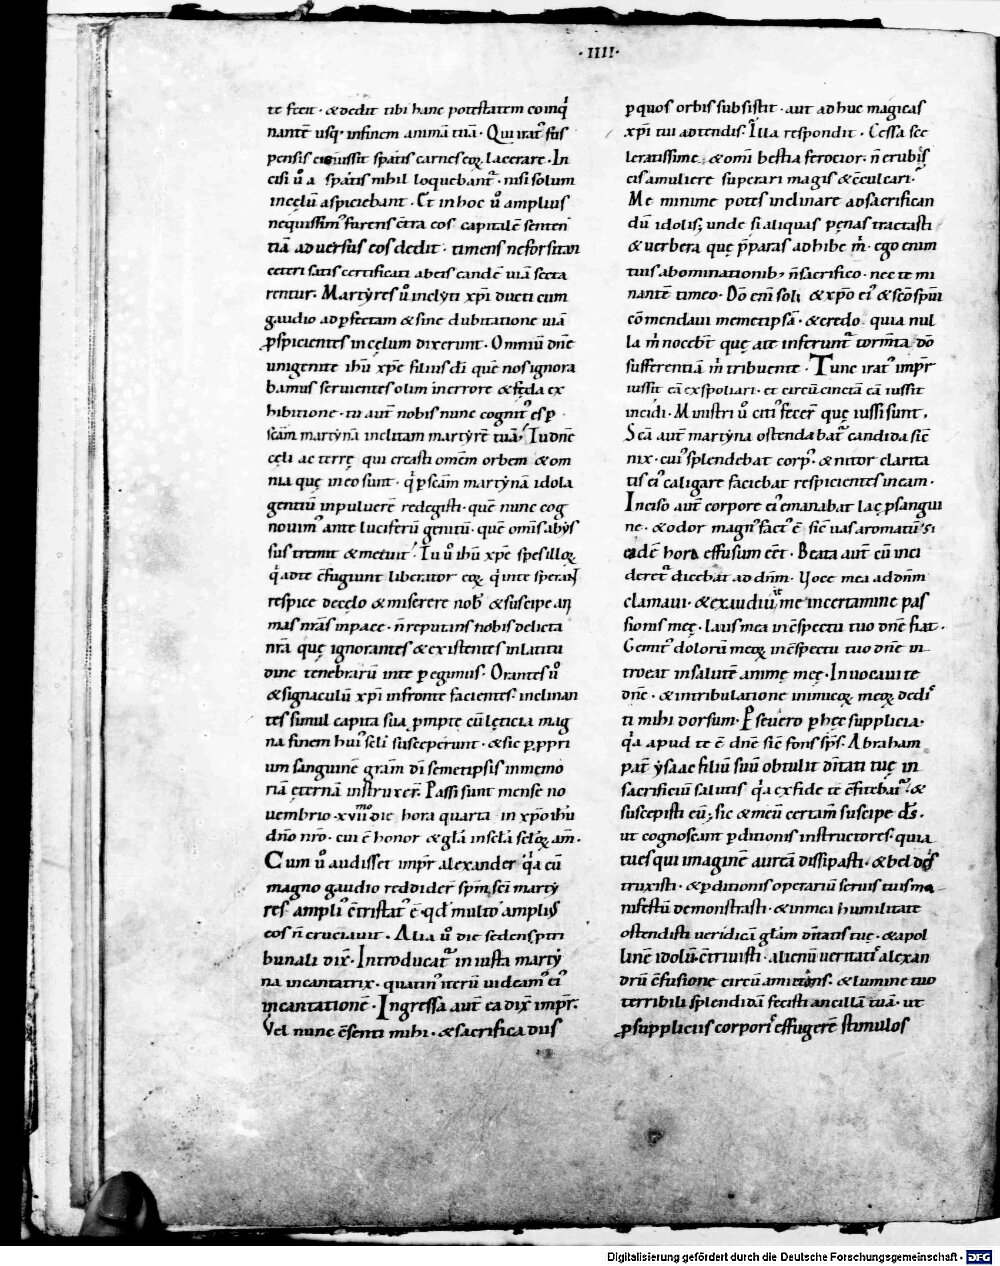 ·IIII·
te fecit · & dedit tibi hanc potestatem coinq̇
nantē usq; infinem animā tuā · Qui irat᾽ sus
pensis eis iussit spatis carnes eoꝝ lacerare · In
cisi ů a spatis nihil loquebant᷑ · nisi solum
incęlū aspiciebant · Et in hoc ů amplius
nequissim᾽ furens c̄tra eos capitalē senten
tiā aduersus eos dedit · timens ne forsitan
ceteri satis certificati abeis eandē uiā secta
rentur · Martyres ů inclyti xpi ducti cum
gaudio adꝑfectam & sine dubitatione uiā
ꝓspicientes incęlum dixerunt · Omniū dnē
unigenite ihū xpē filius dī quē nos ignora
bamus seruientes olim inerrore & fęda ex
hibitione · tu aut̄ nobis nunc cognit᾽ es ꝑ
scām martynā inclitam martyrē tuā · Tu dnē
cęli ac terrę qui creasti omēm orbem & om
nia quę in eo sunt · q̇ ꝑ scām martynā idola
gentiū inpuluerē redegisti · quē nunc cog
nouim᾽ ante luciferū genitū · quē omīs abys
sus tremit & metuit · Tu ů ihū xpē spes illoꝝ
q̇ adte c̄fugiunt liberator eoꝝ q̇ inte sperant
respice decęlo & miserere nob᾽ & suscipe ani
mas nrās inpace · n̄ reputans nobis delicta
nrā quę ignorantes & existentes inlatitu
dine tenebrarū inte pegimus · Orantes ů
& signaculū xpi infronte facientes · inclinan
tes simul capita sua ꝓmpte cū lęticia mag
na finem hui᾽ scl̄i susceperunt · & sic ꝓppri
um sanguinē grām dī semetipsis inmemo
riā ęternā instruxer̄ · Passi sunt mense no
uembrio · xvii mo die hora quarta in xpo ihū
dnō nrō · cui ē honor & glā inscl̄a scl̄oꝝ am̄ ·
Cum ů audisset impr̄ alexander q̇a cū
magno gaudio reddider̄ spm̄ scī marty
res᾽ ampli᾽ c̄tristat᾽ ē · qd̄ multo amplius
eos n̄ cruciauit · Alia ů die sedens ꝓtri
bunali dix̄ · Introducat᷑ in iusta marty
na incantatrix · quatin᾽ iterū uideam᾽ ei᾽
incantationē · Ingressa aut̄ ea dix̄ impr̄ ·
Vel nunc c̄senti mihi · & sacrifica diis
ꝑ quos orbis subsistit · aut adhuc magicas
xpi tui adtendis · Illa respondit · Cessa sce
leratissime · & omī bestia ferocior · n̄ erubis
cis amuliere superari magis & c̄culcari ·
Me minime potes inclinare adsacrifican
dū idolis; unde si aliquas pęnas tractasti
& uerbera quę p̄paras adhibe m̊ · ego enim
tuis abominationib; n̄ sacrifico · nec te mi
nantē timeo · Dō enī soli & xpō ei᾽ & scō spūi
cōmendaui memetipsā · & credo quia nul
la m̊ nocebt̄ quę a te inferunt᷑ torm̄ta dō
sufferentiā m̊ tribuente · Tunc irat᾽ impr̄
iussit eā exspoliari · et circūcinctā eā iussit
incidi · Ministri ů citi᾽ fecer̄ quę iussi sunt ·
Scā aut̄ martyna ostendebat᷑ candida sic̄
nix · cui᾽ splendebat corp᾽ · & nitor clarita
tis ei᾽ caligare faciebat respicientes ineam ·
Inciso aut̄ corpore ei᾽ emanabat lac ꝓ sangui
ne · & odor magn᾽ fact᾽ ē sic̄ uas aromatū si
eadē hora effusum eēt · Beata aut̄ cū inci
deret᷑ dicebat ad dn̄m · Uoce mea addn̄m
clamaui · & exaudiuit me incertamine pas
sionis meę · Laus mea inc̄spectu tuo dnē fiat ·
Gemit᾽ dolorū meoꝝ inc̄spectu tuo dnē in
troeat insalutē animę meę · Inuocaui te
dnē · & intribulatione inimicoꝝ meoꝝ dedi᾽
ti mihi dorsum · Perseuero ꝑ hęc supplicia ·
q̇a apud te ē dnē sic̄ fons sps̄ · Abraham
pat̄ ysaac filiū suū obtulit dn̄tati tuę in
sacrificiū salutis q̇a ex fide te c̄fitebat᷑ · &
suscepisti eū; sic & meū certam̄ suscipe ds̄ ·
ut cognoscant ꝑditionis instructores · quia
tu es qui imaginē aureā dissipasti · & bel des
truxisti · & ꝑditionis operariū seruis tuis ma
nifestū demonstrasti · & inmea humilitate
ostendisti ueridicā glām dn̄tatis tuę · & apol
linē idolū c̄triuisti · alienū ueritati᾽ alexan
drū c̄fusione circūamictans · & lumine tuo
terribili splendidā fecisti ancillā tuā · ut
ꝓ suppliciis corpori᾽ effugerē stimulos
Digitalisierung gefördert durch die Deutsche Forschungsgemeinschaft · DFG